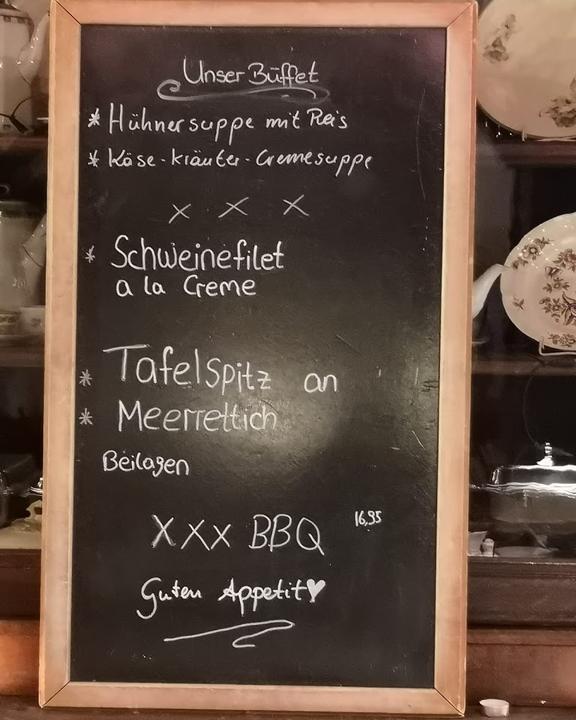 Unser Büffet
* Hühnersuppe mit Reis
* Käse-kräuter-Cremesuppe
x x x
* Schweinefilet
a la Creme
* Tafelspitz an
* Meerrettich
Beilagen
XXX BBQ 16,95
Guten Appetit♥